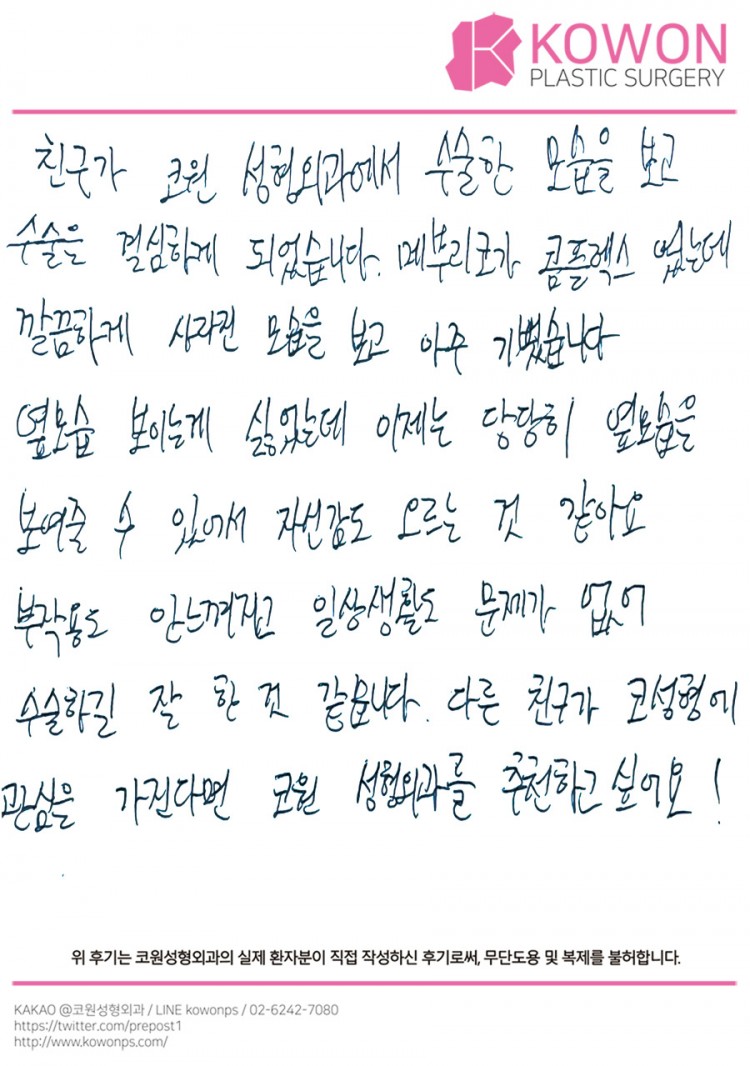 KOWON
PLASTIC SURGERY
친구가 코원 성형외과에서 수술한 모습을 보고
수술을 결심하게 되었습니다. 메부리코가 콤플렉스 였는데
깔끔하게 사라진 모습을 보고 아주 기뻤습니다
옆모습 보이는게 싫었는데 이제는 당당히 옆모습을
보여줄 수 있어서 자신감도 오르는 것 같아요
부작용도 안느껴지고 일상생활도 문제가 없어
수술하길 잘 한 것 같습니다. 다른 친구가 코성형에
관심을 가진다면 코원 성형외과를 추천하고 싶어요!
위 후기는 코원성형외과의 실제 환자분이 직접 작성하신 후기로써, 무단도용 및 복제를 불허합니다.
KAKAO @코원성형외과 / LINE kowonps / 02-6242-7080
https://twitter.com/prepost1
http://www.kowonps.com/